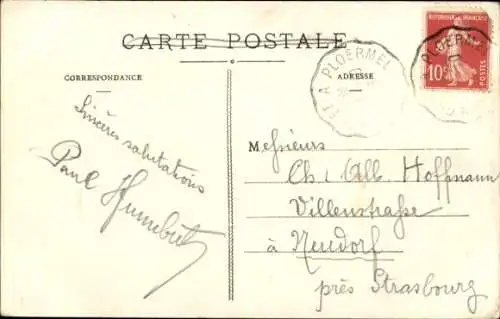 CARTE POSTALE
CORRESPONDANCE
ADRESSE
A PLOERMEL
PLOERMEL
REPUBLIQUE FRANÇAISE
10c
POSTES
Sincères salutations
Paul
Messieurs
Ch. Alb. Hoffmann
Villenstraße
à Neudorf
près Strasbourg